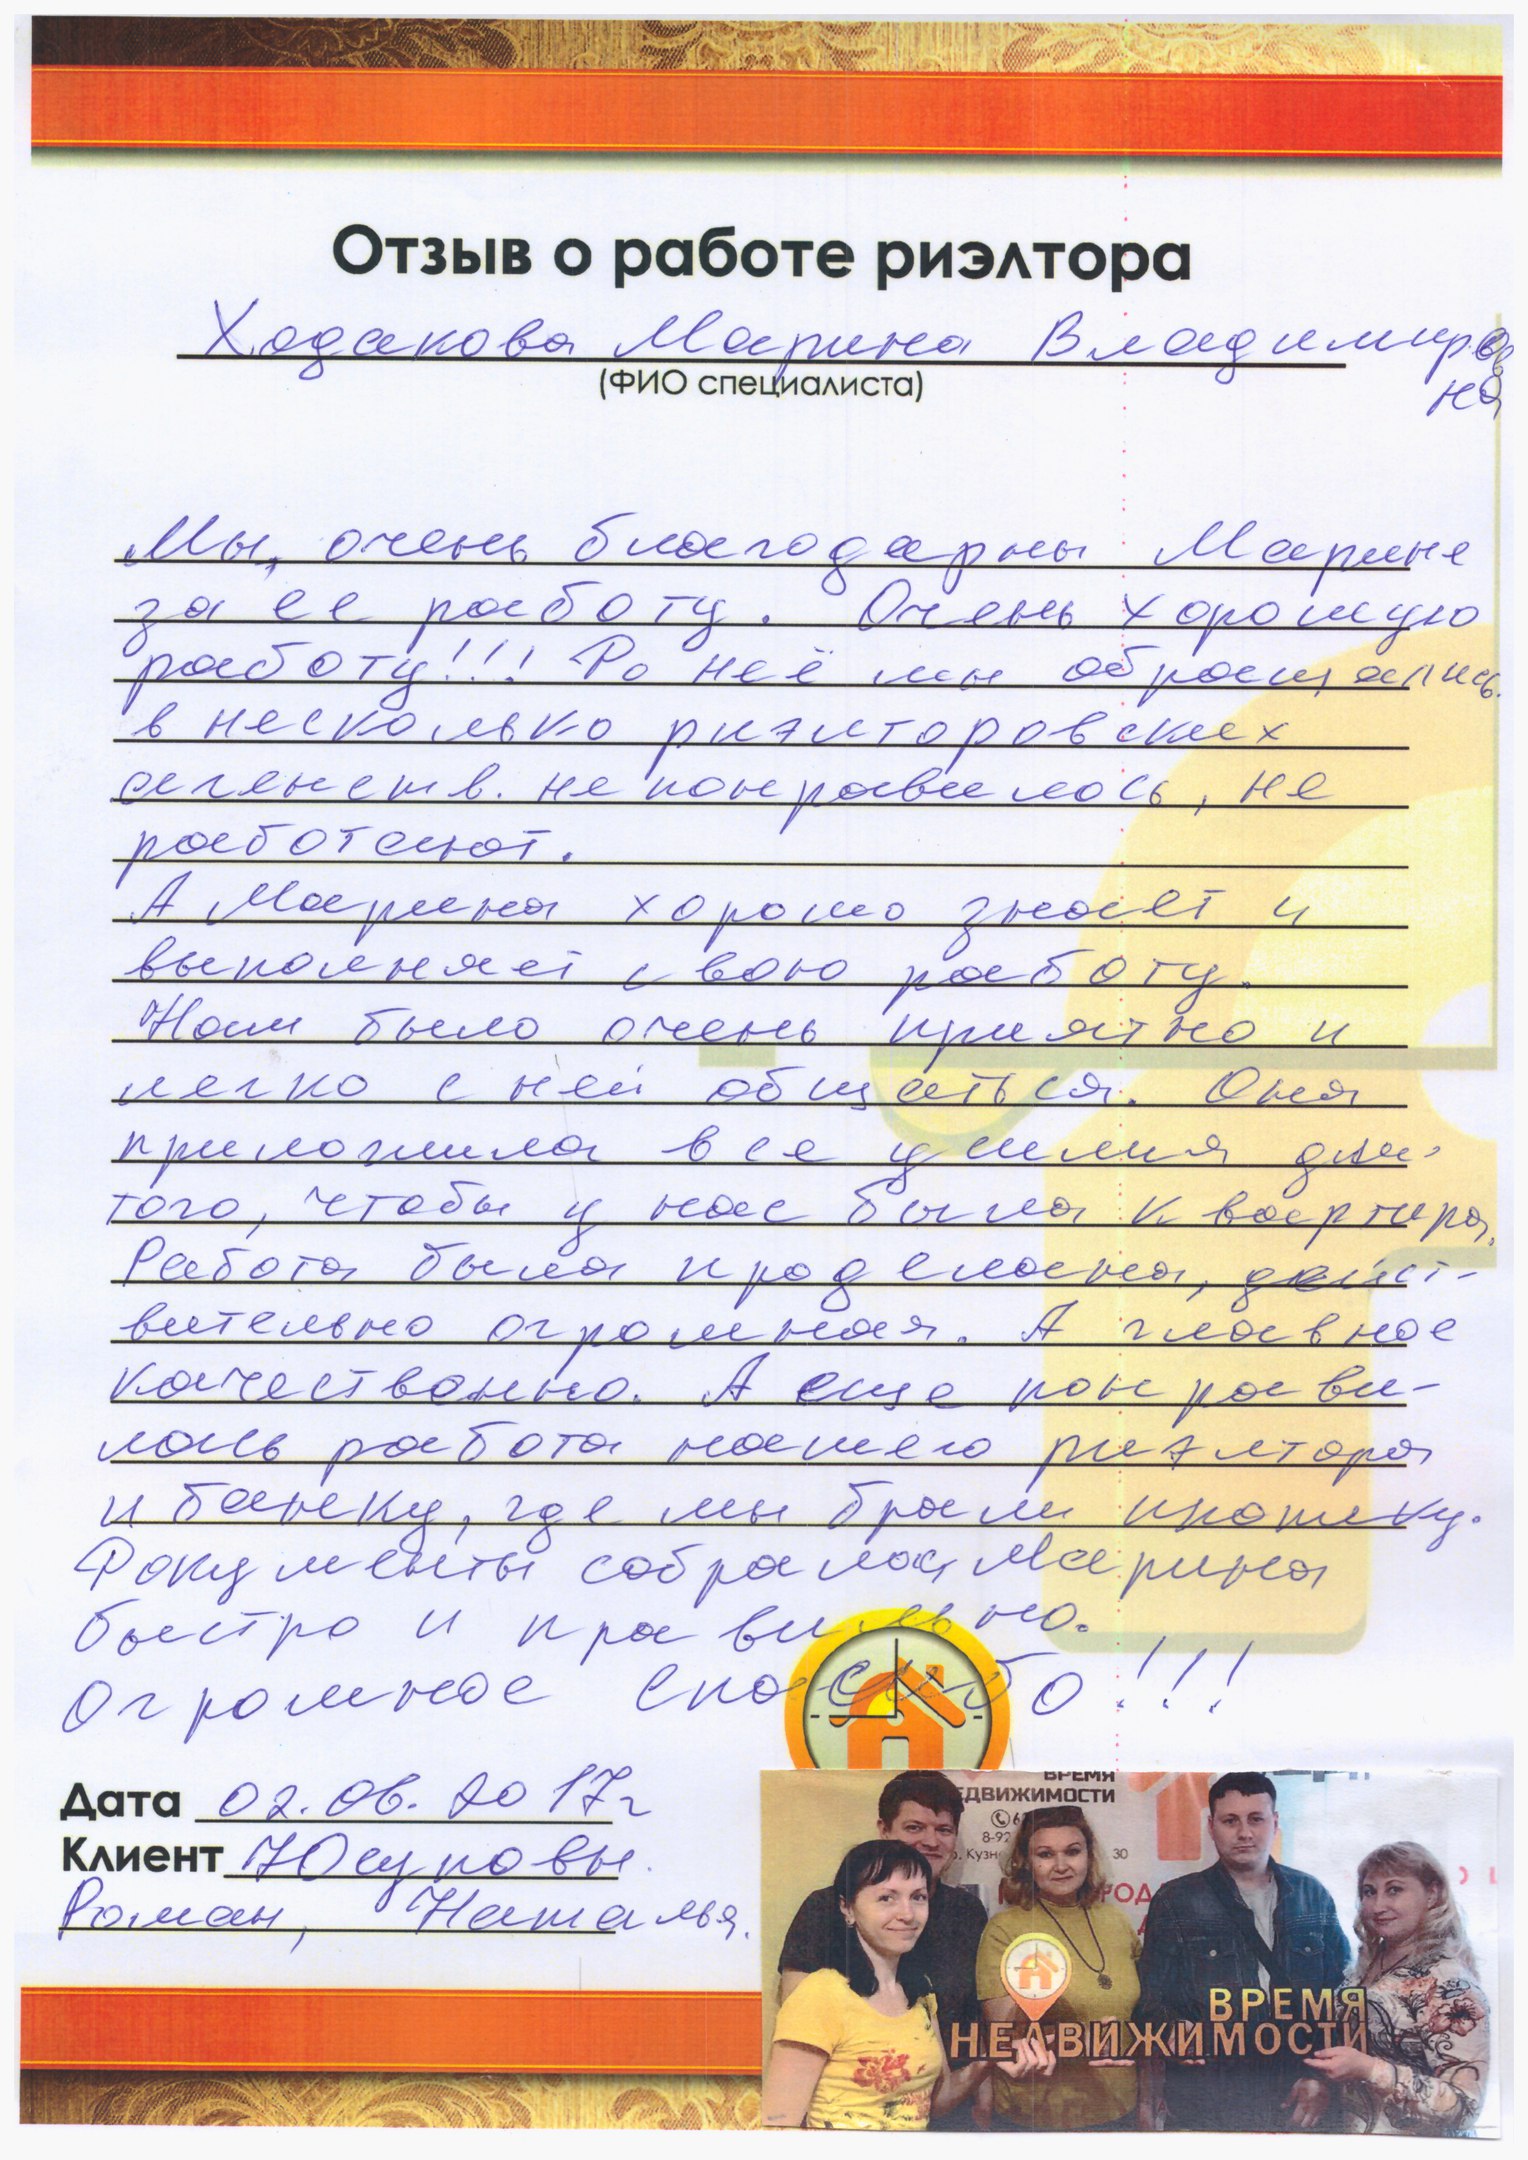 Отзыв о работе риэлтора
Ходакова Марина Владимиров
на
(ФИО специалиста)
Мы, очень благодарны Марине
за её работу. Очень хорошую
работу!!! До неё мы обращались
в несколько риэлторовских
агенств. не понравилось, не
работают.
А Марина хорошо знает и
выполняет свою работу.
Нам было очень приятно и
легко с ней общаться. Она
приложила все усилия для
того, чтобы у нас была квартира.
Работа была проделана, дейст-
вительно огромная. А главное
качественно. А еще понрави-
лась работа нашего риэлтора
и банку, где мы брали ипотеку.
Документы собрала Марина
быстро и правильно.
Огромное спасибо!!!
Дата 02.06.2017г
Клиент Юсуповы.
Роман, Наталья.
ВРЕМЯ
ЕДВИЖИМОСТИ
8-92
р. Кузне 30
ГОРОД
ВРЕМЯ
НЕДВИЖИМОСТИ